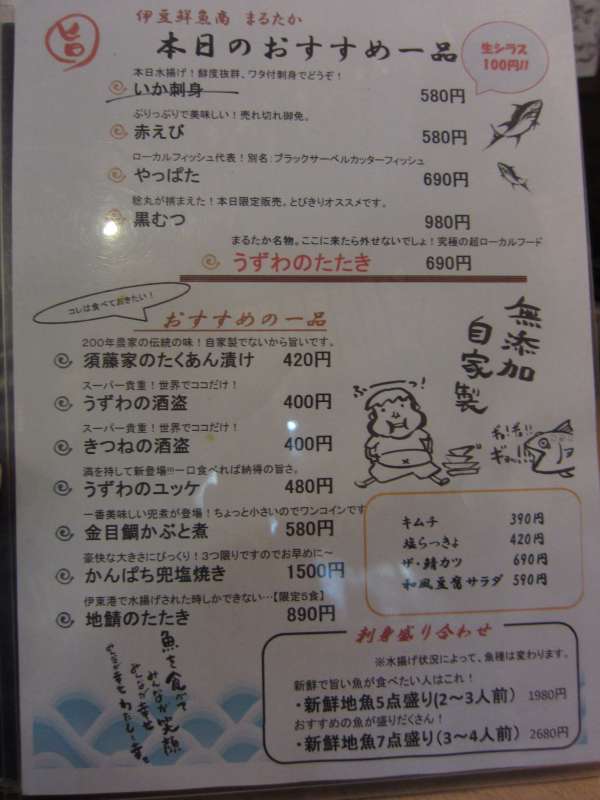 旨
伊豆鮮魚商 まるたか
本日のおすすめ一品
生シラス
100円!!
本日水揚げ!鮮度抜群、ワタ付刺身でどうぞ!
いか刺身 580円
ぷりっぷりで美味しい!売れ切れ御免。
赤えび 580円
ローカルフィッシュ代表!別名:ブラックサーベルカッターフィッシュ
やっぱた 690円
稔丸が捕まえた!本日限定販売。とびきりオススメです。
黒むつ 980円
まるたか名物。ここに来たら外せないでしょ!究極の超ローカルフード
うずわのたたき 690円
コレは食べておきたい!
おすすめの一品
200年農家の伝統の味!自家製でないから旨いです。
須藤家のたくあん漬け 420円
スーパー貴重!世界でココだけ!
うずわの酒盗 400円
スーパー貴重!世界でココだけ!
きつねの酒盗 400円
満を持して新登場!!!一口食べれば納得の旨さ。
うずわのユッケ 480円
一番美味しい兜煮が登場!ちょっと小さいのでワンコインです
金目鯛かぶと煮 580円
豪快な大きさにびっくり!3つ限りですのでお早めに~
かんぱち兜塩焼き 1500円
伊東港で水揚げされた時しかできない…【限定5食】
地鯖のたたき 890円
無添加
自家製
キムチ 390円
塩らっきょ 420円
ザ・鯖カツ 690円
和風豆腐サラダ 590円
刺身盛り合わせ
※水揚げ状況によって、魚種は変わります。
新鮮で旨い魚が食べたい人はこれ!
・新鮮地魚5点盛り(2~3人前) 1980円
おすすめの魚が盛りだくさん!
・新鮮地魚7点盛り(3~4人前) 2680円
魚を食べて
みんなが笑顔
みんなが幸せ